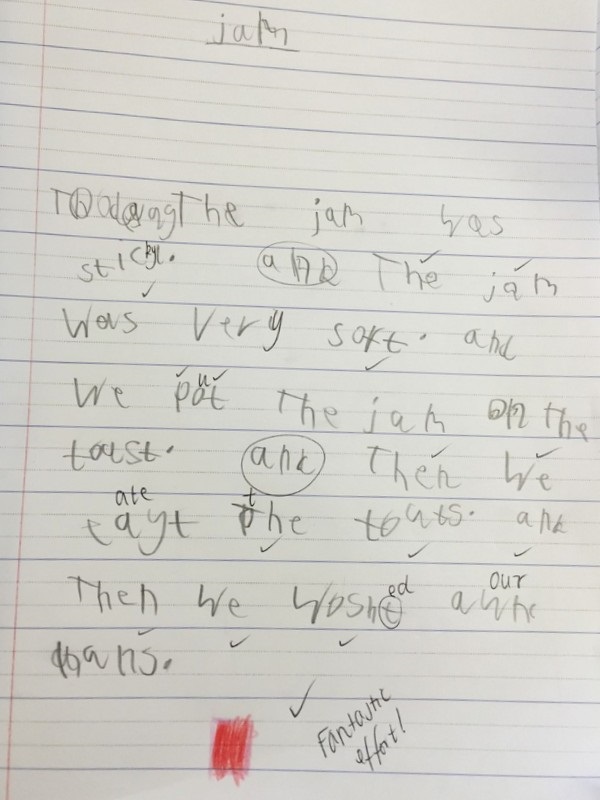 jam
The jam was
sticky. and The jam
was very soft. and
We pot the jam on the
u
toust. and Then We
ate t
eayt the touts. and
ed our
Then we wosht awr
hans.
Fantastic
effort!